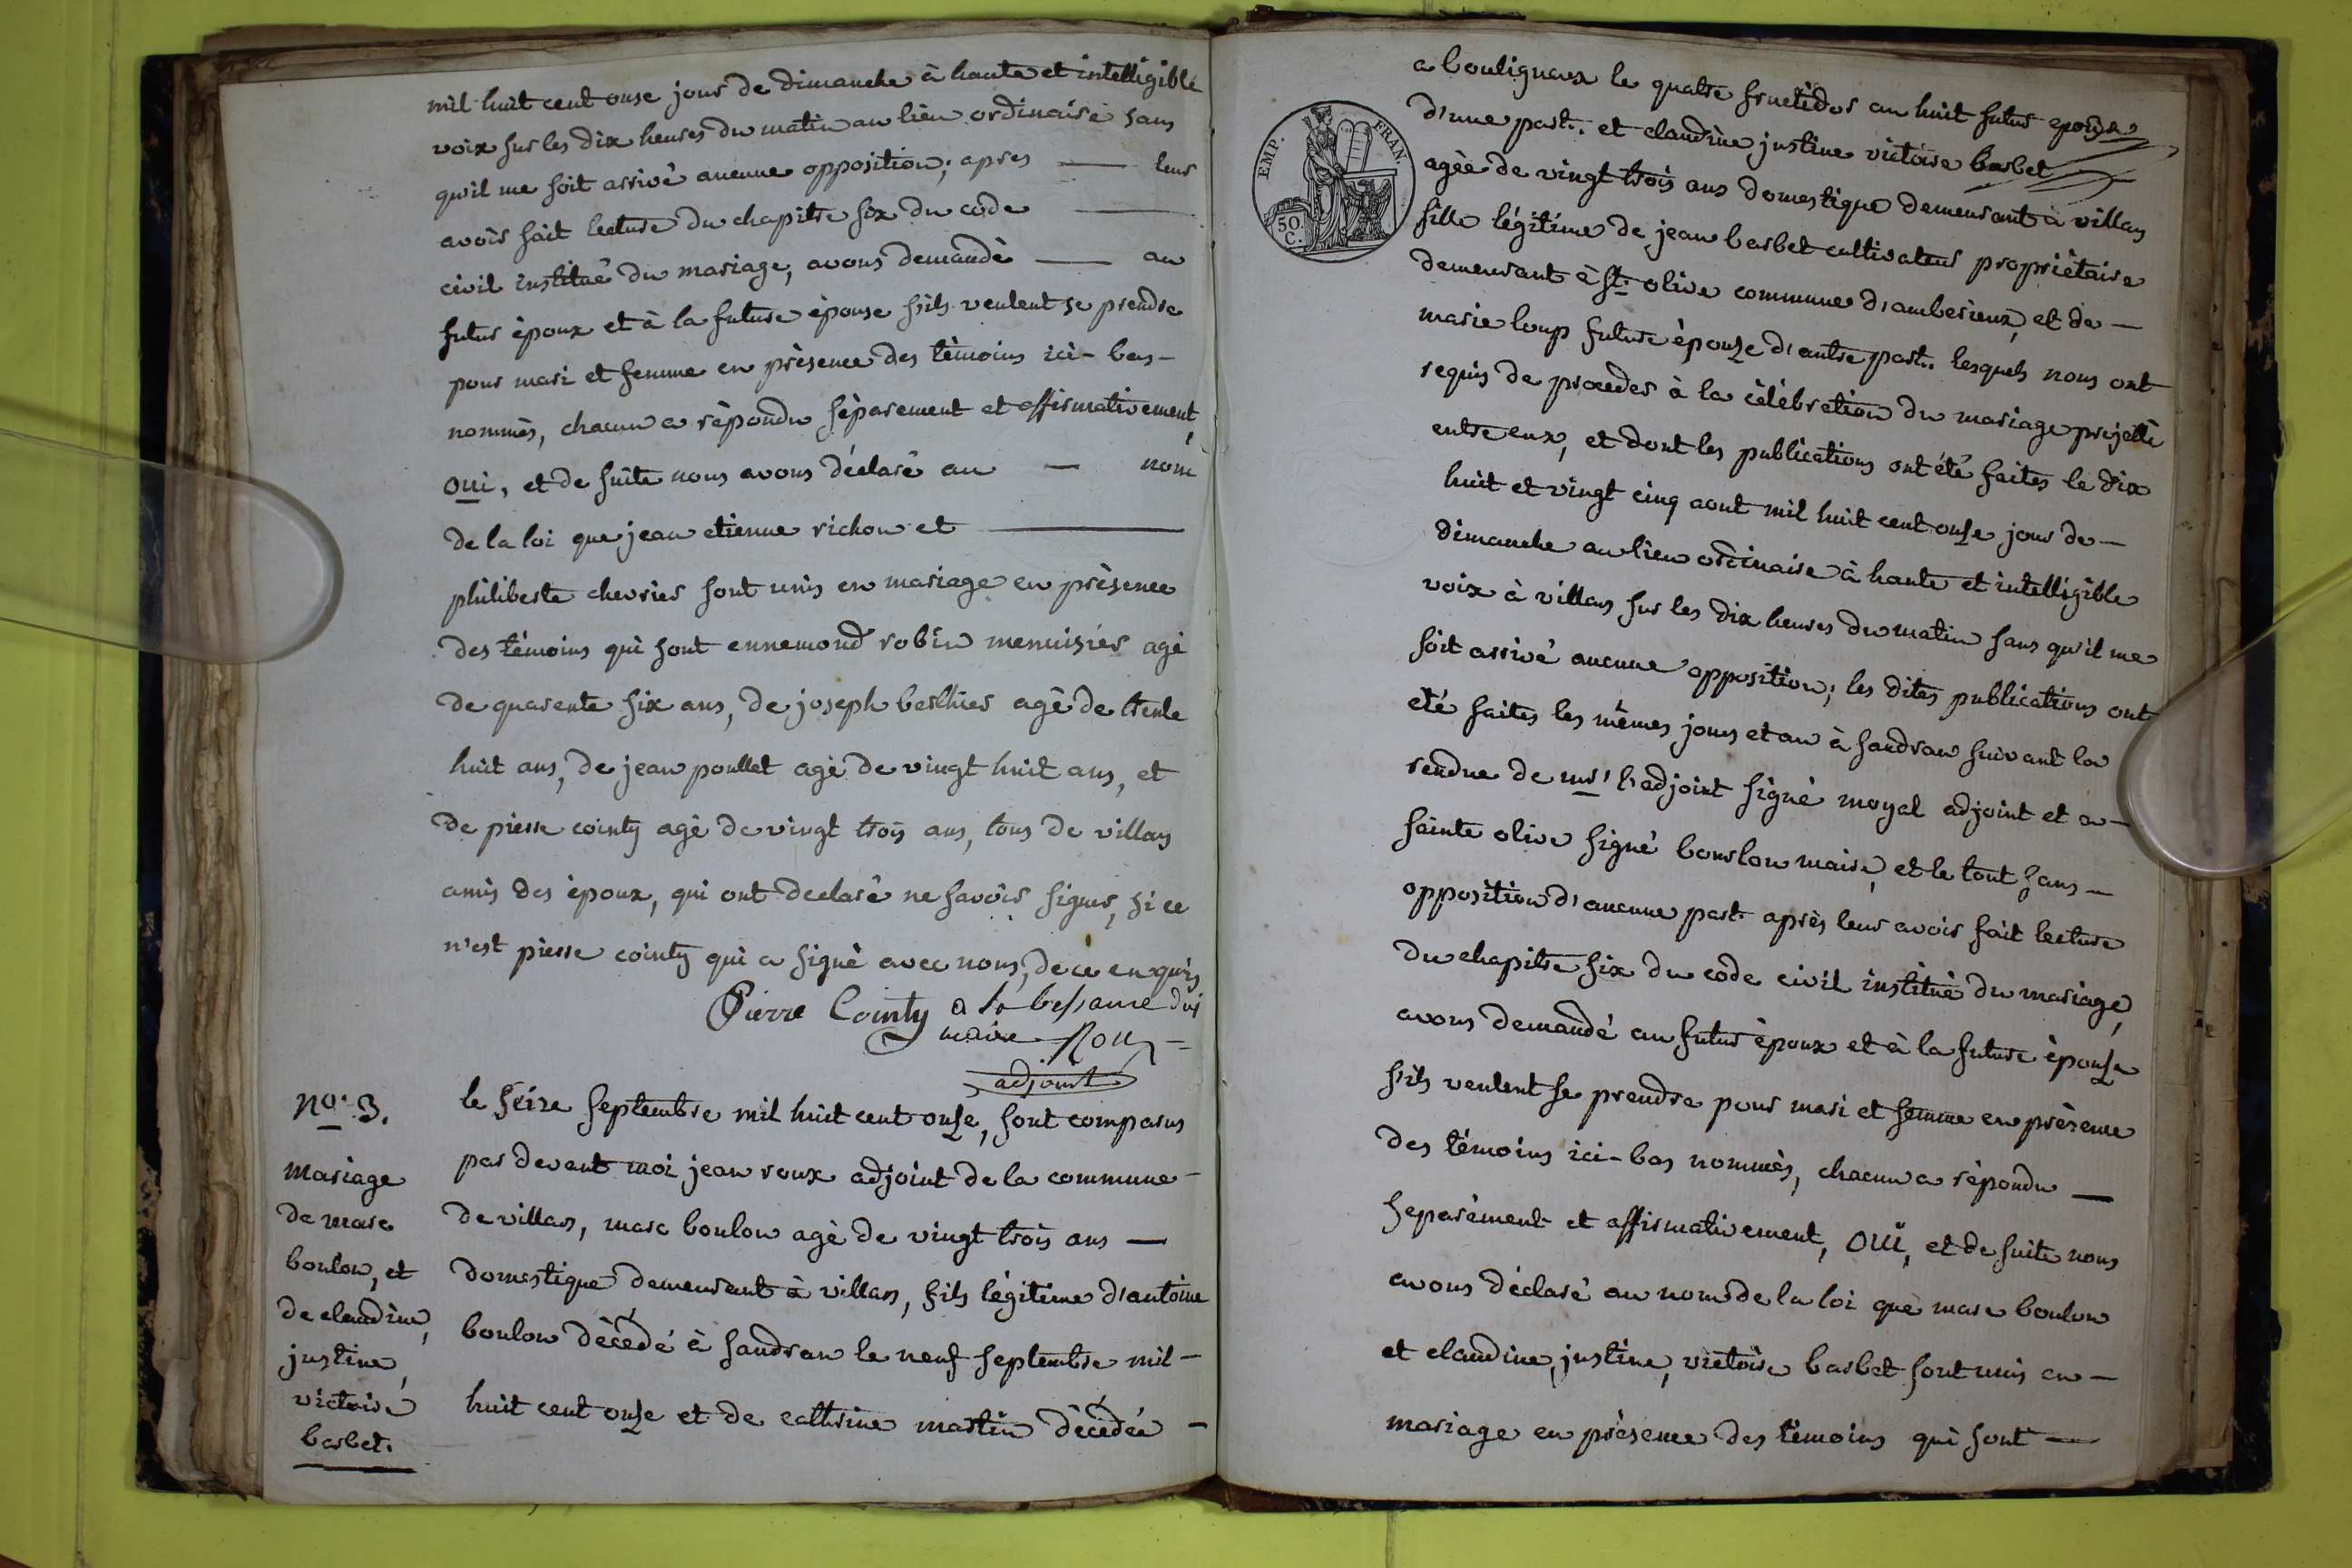 mil huit cent onse jour de dimanche à haute et intelligible
voix sur les dix heures du matin au lieu ordinaire sans
qu'il me soit arrivé aucune opposition; apres — leur
avoir fait lecture du chapitre six du code —
civil institué du mariage, avons demandè — au
futur èpoux et à la future èpouse s'ils veulent se prendre
pour mari et femme en prèsence des tèmoins ici-bas-
nommès, chacun a rèpondu sèparement et affirmativement,
oui, et de suite nous avons dèclaré au — nom
de la loi que jean etienne richon et —
philiberte chevrier sont unis en mariage en prèsence
des tèmoins qui sont ennemond robin menuisier agè
de quarente six ans, de joseph berthier agè de trente
huit ans, de jean poullet agè de vingt huit ans, et
de pierre cointy agè de vingt trois ans, tous de villars
amis des èpoux, qui ont declaré ne savoir signer, si ce
n'est pierre cointy qui a signè avec nous, de ce enquis
Pierre Cointy
maire Roux
adjoint
no. 3.
mariage
de marc
boulon, et
de claudine,
justine,
victoire
barbet.
le seize septembre mil huit cent onse, sont comparus
par devant moi jean roux adjoint de la commune-
de villars, marc boulon agè de vingt trois ans —
domestique demeurant à villars, fils lègitime d'antoine
boulon dècèdé à sandran le neuf septembre mil-
huit cent onse et de cathrine martin dècèdèe -
EMP. FRAN.
50.
C.
a bouligneux le quatre fructidor an huit futur epoux
d'une part. et claudine justine victoire barbet
agèe de vingt trois ans domestique demeurant à villars
fille lègitime de jean barbet cultivateur propriètaire
demeurant à st. olive commune d'amberieux, et de —
marie loup future èpouse d'autre part. lesquels nous ont
requis de proceder à la cèlèbration du mariage projettè
entre eux, et dont les publications ont étè faites le dix
huit et vingt cinq aout mil huit cent onse jour de —
dimanche au lieu ordinaire à haute et intelligible
voix à villars sur les dix heures du matin sans qu'il me
soit arrivé aucune opposition; les dites publications ont
étè faites les mêmes jours et an à sandran suivant la
rendue de mr. l'adjoint signè moyal adjoint et a —
sainte olive signè bourlon maire, et le tout sans —
opposition d'aucune part. après leur avoir fait lecture
du chapitre six du code civil institué du mariage,
avons demandé au futur èpoux et à la future èpouse
s'ils veulent se prendre pour mari et femme en prèsence
des tèmoins ici-bas nommès, chacun a rèpondu —
separèment et affirmativement, oui, et de suite nous
avons dèclaré au nom de la loi que marc boulon
et claudine, justine, victoire barbet sont unis en —
mariage en prèsence des tèmoins qui sont —